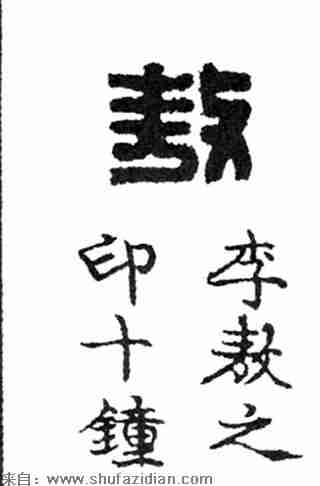 敖
李敖之
印十鐘
来自：www.shufazidian.com